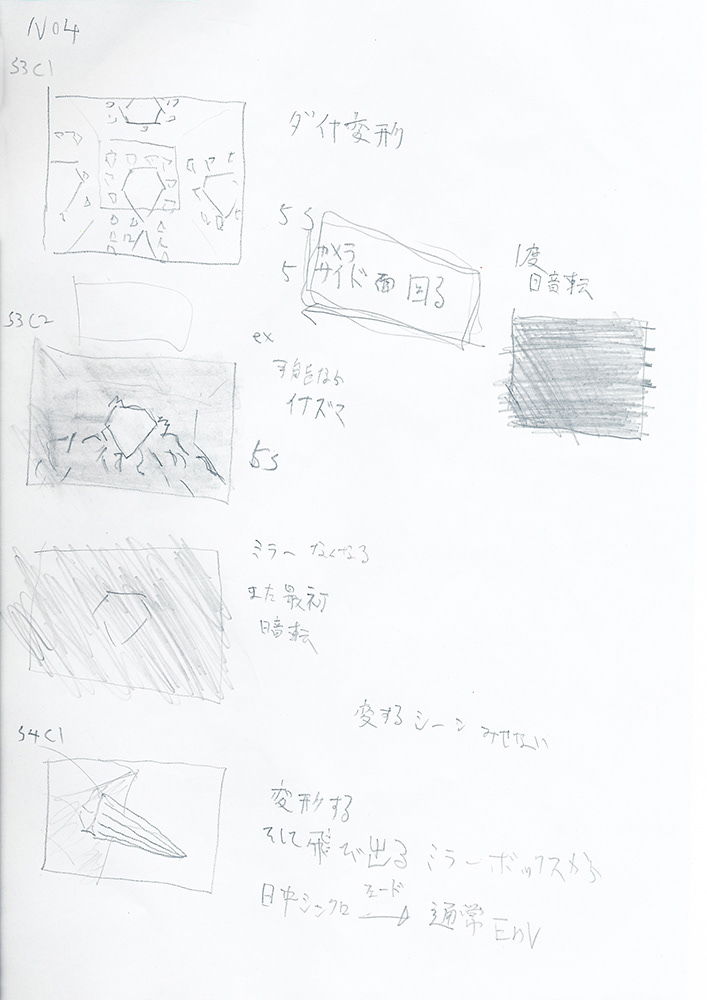 NO4
S3C1
ダイヤ変形
5S
カメラ
5 サイド面回る
1度
暗転
S3C2
ex
可能なら
イナズマ
5S
ミラーなくなる
また最初
暗転
変するシーンみせない
S4C1
変形する
そして飛び出るミラーボックスから
シンクロ フェード → 通常 Env